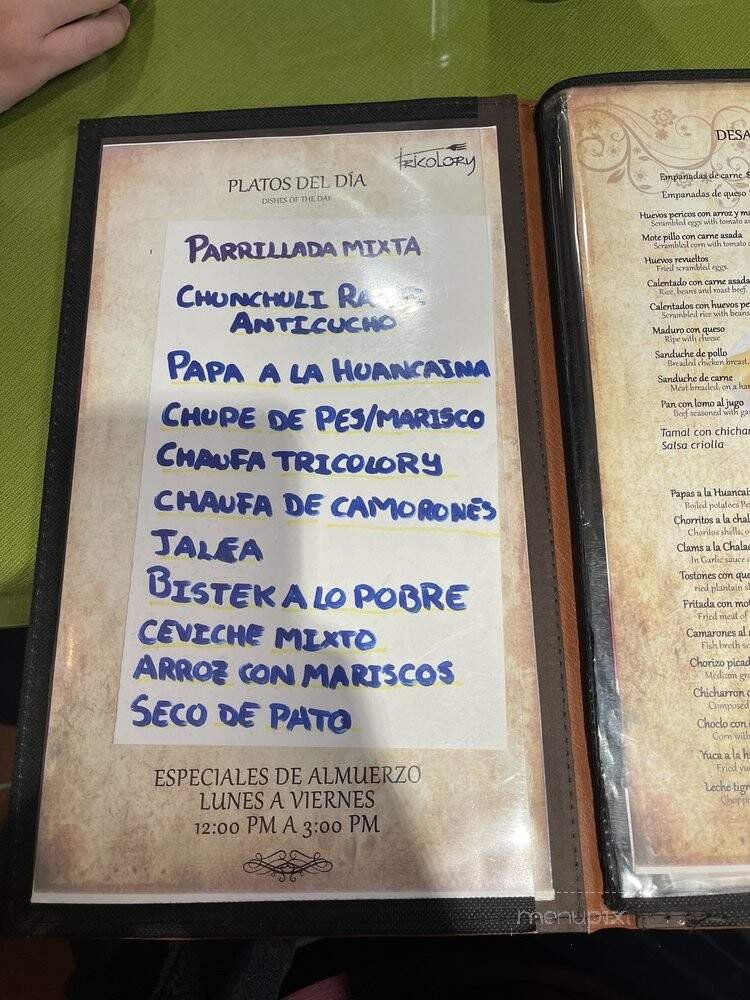 TRICOLORY
PLATOS DEL DÍA
DISHES OF THE DAY
PARRILLADA MIXTA
CHUNCHULI
ANTICUCHO
PAPA A LA HUANCAINA
CHUPE DE PES/MARISCO
CHAUFA TRICOLORY
CHAUFA DE CAMORONES
JALEA
BISTEK A LO POBRE
CEVICHE MIXTO
ARROZ CON MARISCOS
SECO DE PATO
ESPECIALES DE ALMUERZO
LUNES A VIERNES
12:00 PM A 3:00 PM
DESA
Empanadas de carne $
Empanadas de queso
Huevos pericos con arroz y ma
Scrambled eggs with tomato a
Mote pillo con carne asada
Scrambled corn with tomato
Huevos revueltos
Fried scrambled eggs.
Calentado con carne asada
Rice, beans and roast beef.
Calentados con huevos pe
Scrambled rice with beans
Maduro con queso
Ripe with cheese
Sanduche de pollo
Breaded chicken breast,
Sanduche de carne
Meat breaded, on a ha
Pan con lomo al jugo
Beef seasoned with ga
Tamal con chichar
Salsa criolla
Papas a la Huancai
Boiled potatoes Pe
Chorritos a la chal
Choritos shells, o
Clams a la Chalac
In Garlic sauce
Tostones con que
ried plantain s
Fritada con mot
Fried meat of
Camarones al
Fish broth s
Chorizo picad
Medium gr
Chicharron
Composed
Choclo con
Corn with
Yuca a la h
Fried yu
Leche tigr
Choppe
menupix